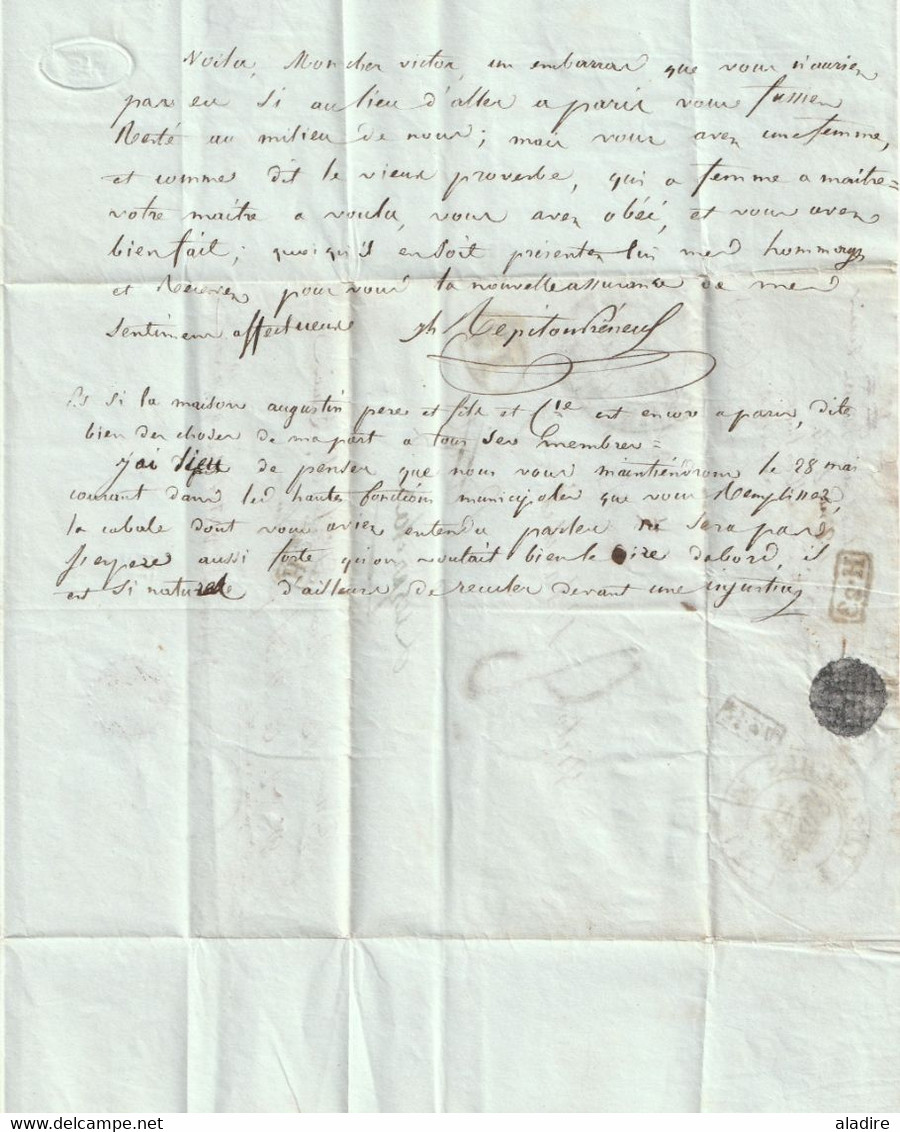 Voila, Mon cher victor, un embarras que vous n'auriez
pas eu si au lieu d'aller a paris vous fussiez
Resté au milieu de nous; mais vous avez une femme,
et comme dit le vieux proverbe, qui a femme a maitre=
votre maitre a voulu, vous avez obéi, et vous avez
bien fait; quoiqu'il en soit présentez lui mes hommages
et Recevez pour vous la nouvelle assurance de mes
sentimens affectueux
Ps si la maison augustin pere et fils et Cie est encore a paris, dite
bien des choses de ma part a tous ses membres=
J'ai lieu de penser que nous vous maintiendrons le 28 mai
courant dans les hautes fonctions municipales que vous Remplissez,
la cabale dont vous aviez entendu parler ne sera pas
j'espere aussi forte qu'on voulait bien le dire dabord, il
est si naturel d'ailleurs de reculer devant une injustice
aladire